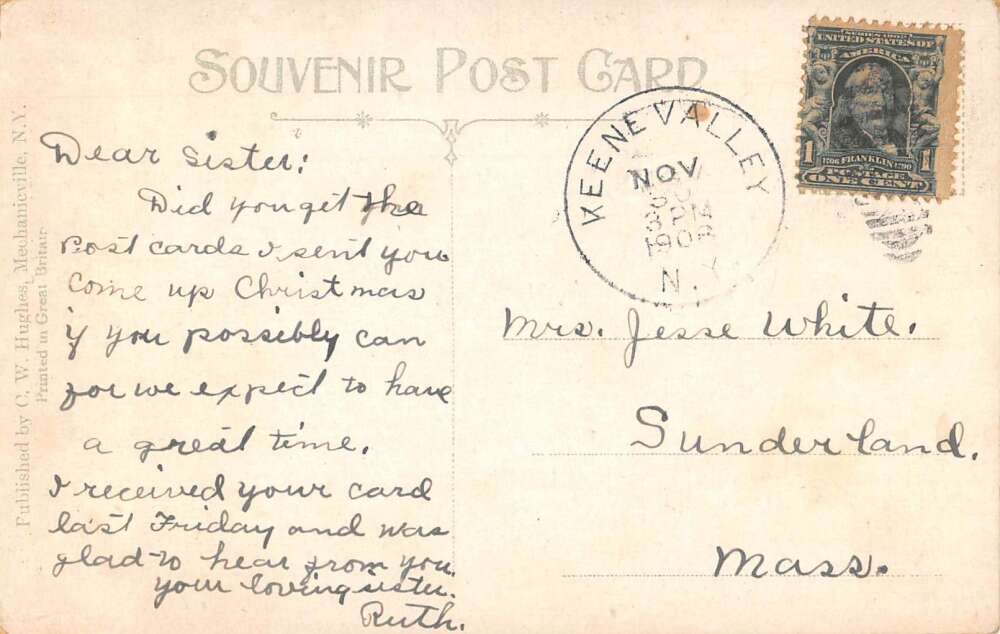 SOUVENIR POST CARD
Published by C. W. Hughes, Mechanicville, N.Y.
Printed in Great Britain
Dear Sister:
Did you get the
Post cards I sent you
Come up Christmas
if you possibly can
for we expect to have
a great time.
I received your card
last Friday and was
glad to hear from you.
Your loving sister.
Ruth.
KEENE VALLEY
NOV
3 PM
1908
N.Y.
SERIES 1902
UNITED STATES OF
AMERICA
1706 FRANKLIN 1790
1 POSTAGE 1
ONE CENT
Mrs. Jesse White.
Sunderland.
Mass.